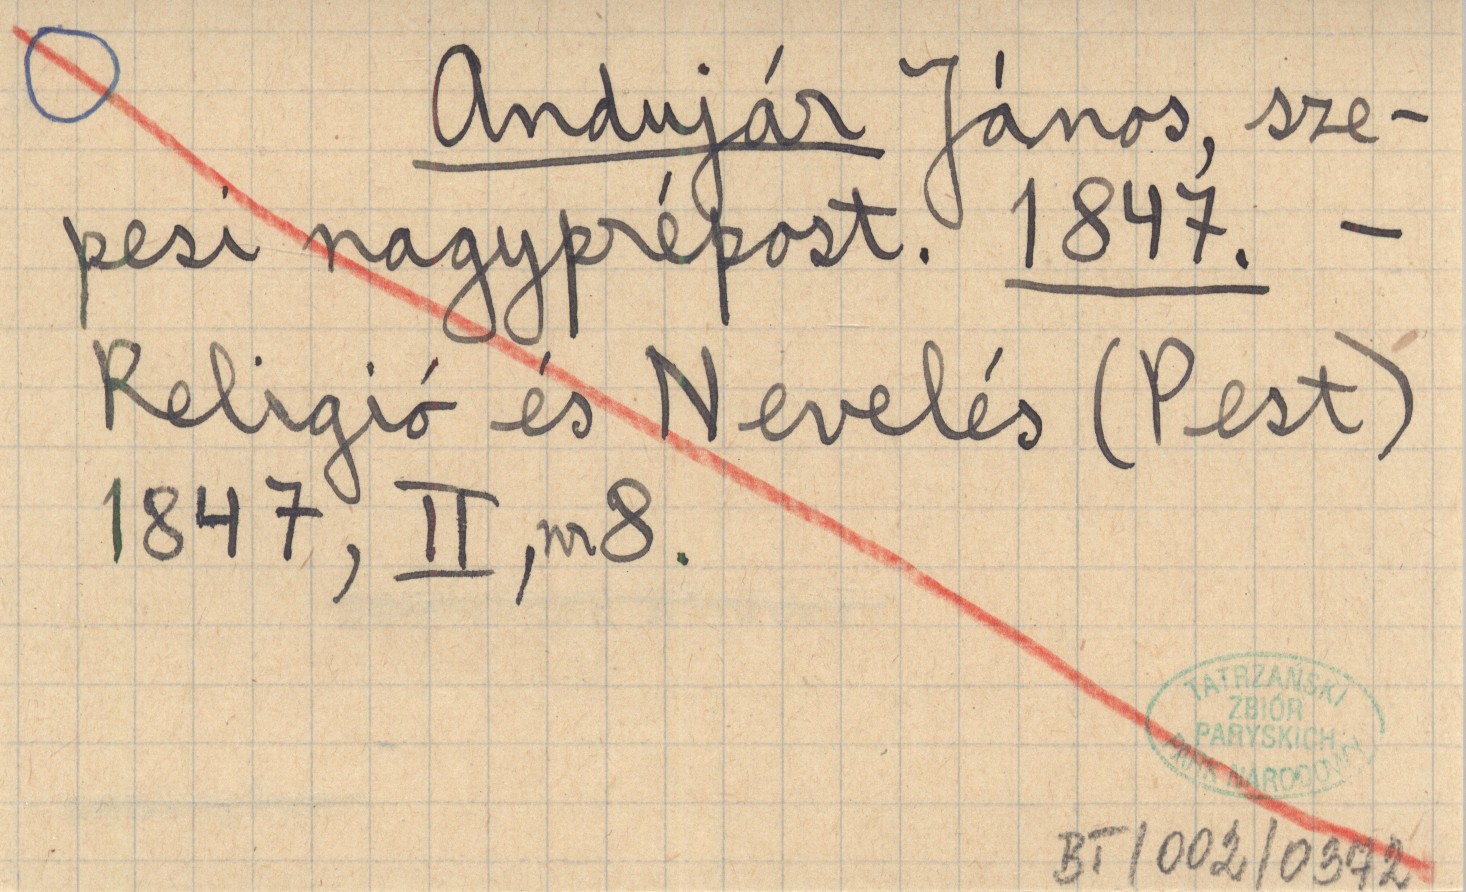 Andujár János, sze-
pesi nagyprépost. 1847. –
Religió és Nevelés (Pest)
1847, II, nr 8.
TATRZAŃSKI
ZBIÓR
PARYSKICH
PARK NARODOWY
BT/002/0372